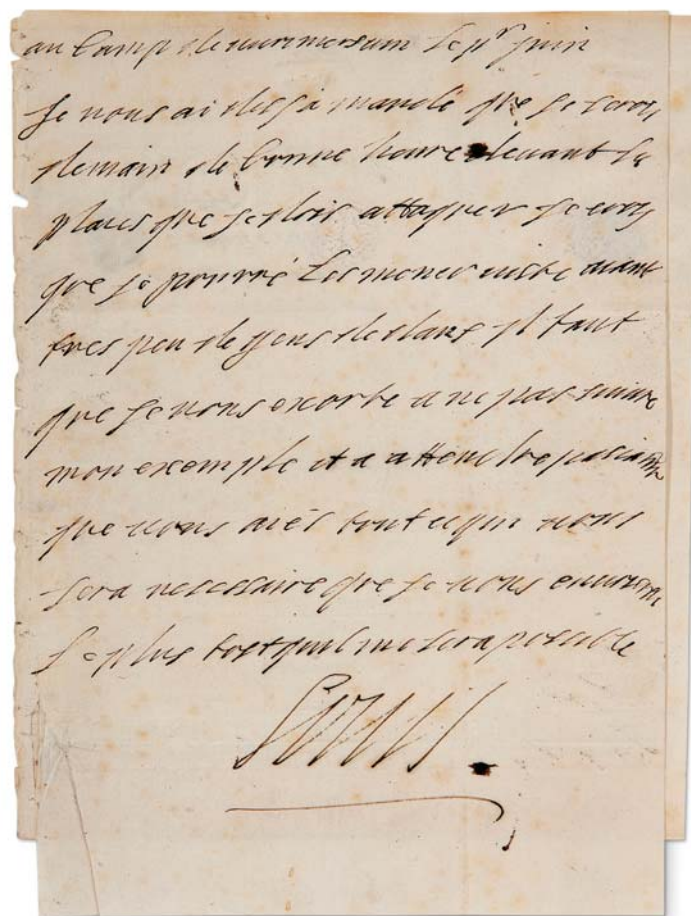 au camp de le pr juin
Je vous ai desja mandé que je serois
demain de bonne heure devant la
place que je dois attaquer je croy
que je pourré les mener viste aiant
tres peu de gens dedans il faut
que je vous exorte a ne pas suivre
mon exemple et a attendre
que vous aiés tout ce qui vous
sera necessaire que je vous
le plus tost quil me sera posible
Louis